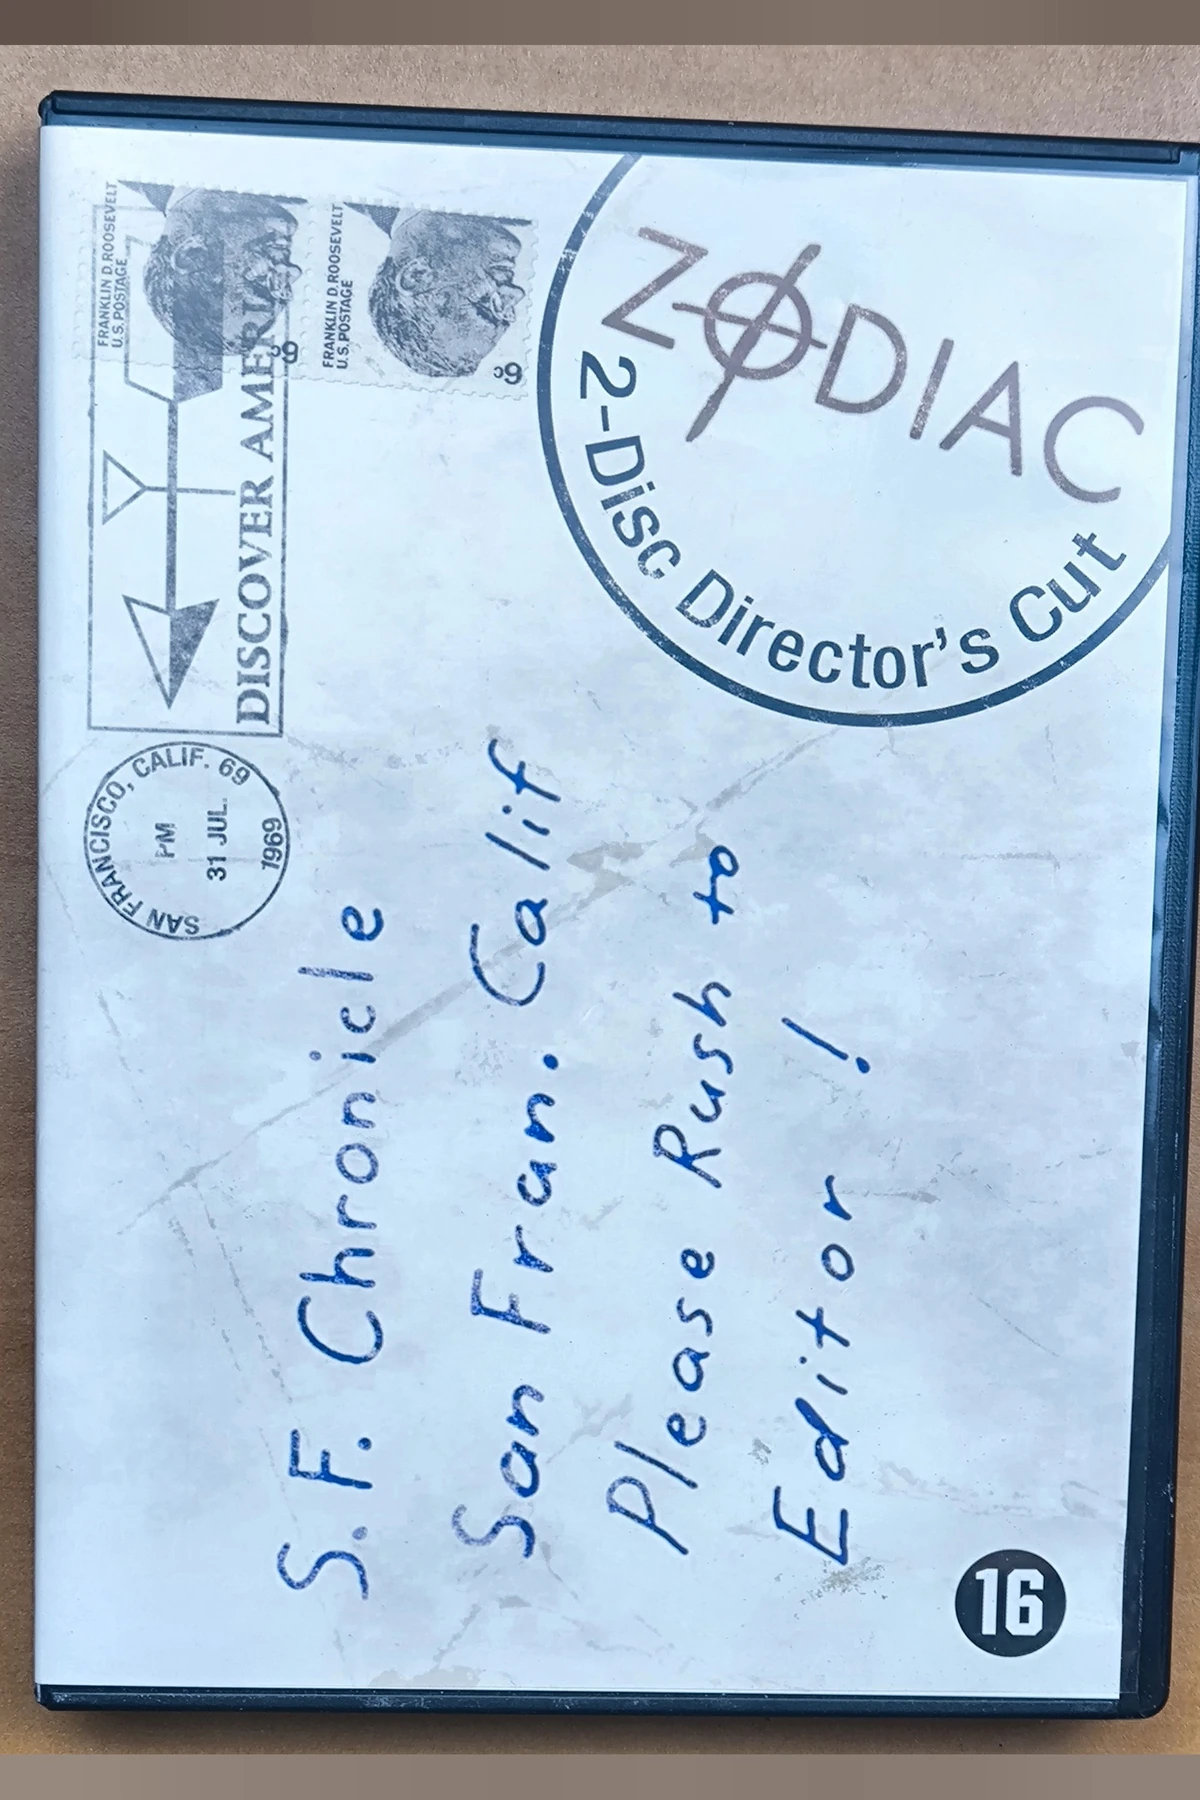 ZODIAC
2-Disc Director's Cut
FRANKLIN D. ROOSEVELT
U.S. POSTAGE
6c
FRANKLIN D. ROOSEVELT
U.S. POSTAGE
6c
DISCOVER AMERICA
SAN FRANCISCO, CALIF. 69
PM
31 JUL.
1969
S.F. Chronicle
San Fran. Calif
Please Rush to
Editor!
16